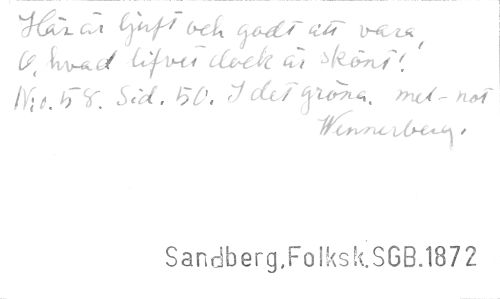 Här är ljuft och godt att vara,
O, hvad lifvet dock är skönt!
N:o. 58. Sid. 50. I det gröna. mel-not
Wennerberg.
Sandberg,Folksk.SGB.1872